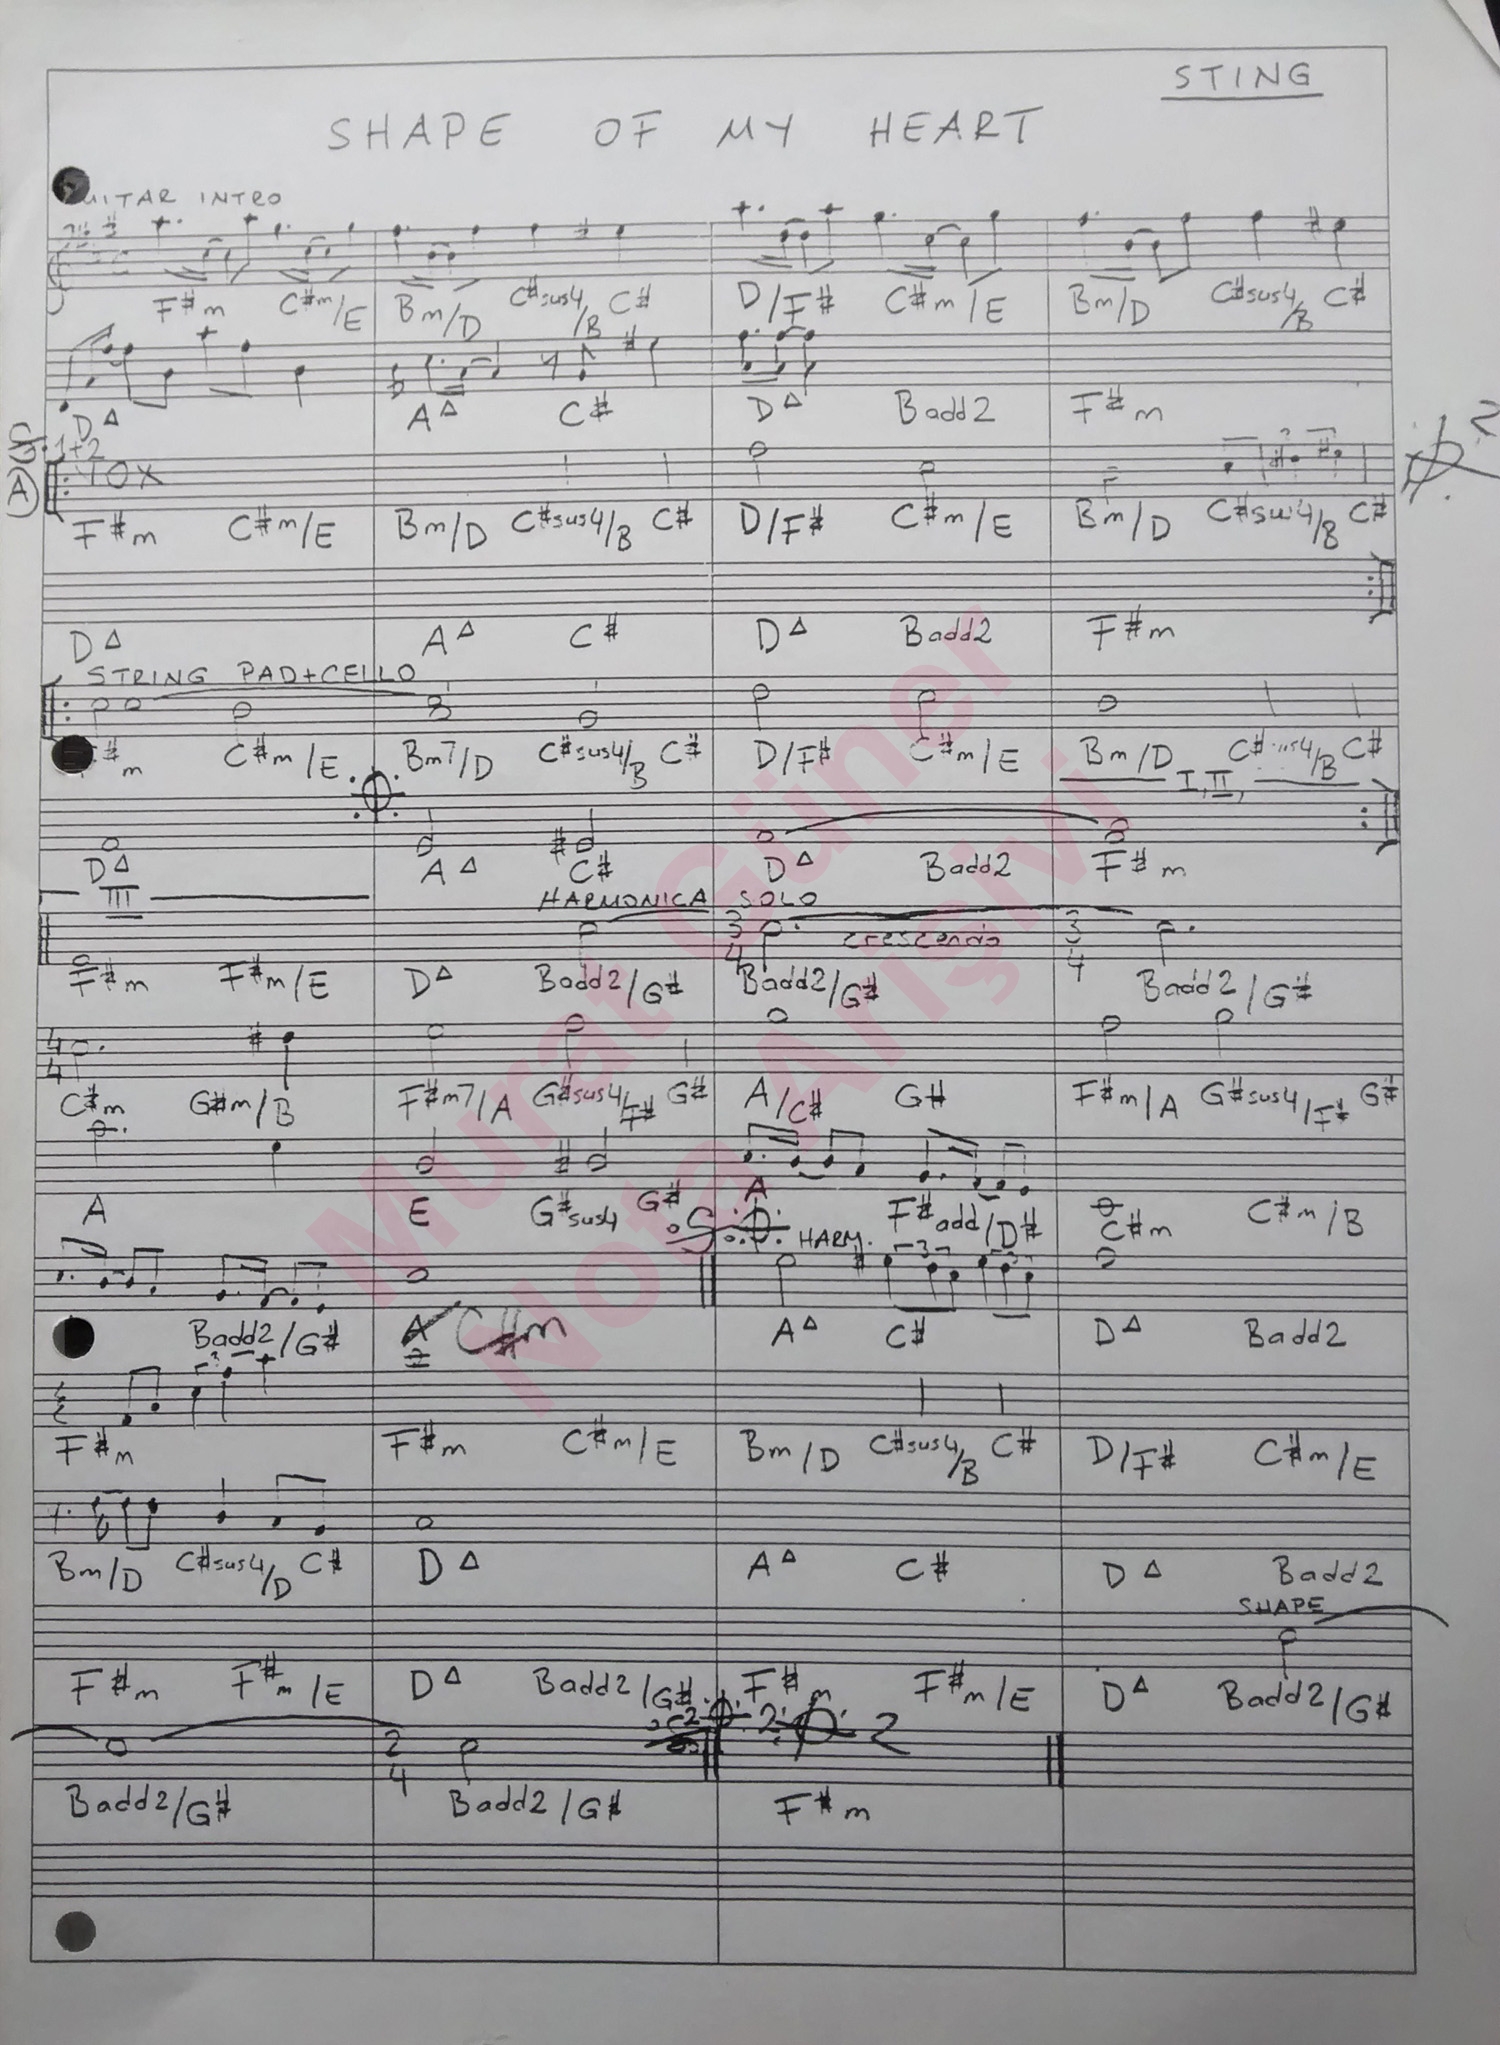 STING
SHAPE OF MY HEART
GUITAR INTRO
F#m C#m/E Bm/D C#sus4/B C# D/F# C#m/E Bm/D C#sus4/B C#
D△ A△ C# D△ Badd2 F#m
1+2 2
A VOX 3
F#m C#m/E Bm/D C#sus4/B C# D/F# C#m/E Bm/D C#sus4/B C#
D△ A△ C# D△ Badd2 F#m
STRING PAD+CELLO
F#m C#m/E Bm7/D C#sus4/B C# D/F# C#m/E Bm/D C#sus4/B C#
I, II,
D△ A△ C# D△ Badd2 F#m
III HARMONICA SOLO
3/4 crescendo 3/4
F#m F#m/E D△ Badd2/G# Badd2/G# Badd2/G#
4/4
C#m G#m/B F#m7/A G#sus4/F# G# A/C# G# F#m/A G#sus4/F# G#
A E G#sus4 G# A F#add/D# C#m C#m/B
HARM.
3 3
Badd2/G# A C#m A△ C# D△ Badd2
3
F#m F#m C#m/E Bm/D C#sus4/B C# D/F# C#m/E
Bm/D C#sus4/D C# D△ A△ C# D△ Badd2
SHAPE
F#m F#m/E D△ Badd2/G# F#m F#m/E D△ Badd2/G#
2/4 2 2
Badd2/G# Badd2/G# F#m
Murat Güner
Nota Arişivi